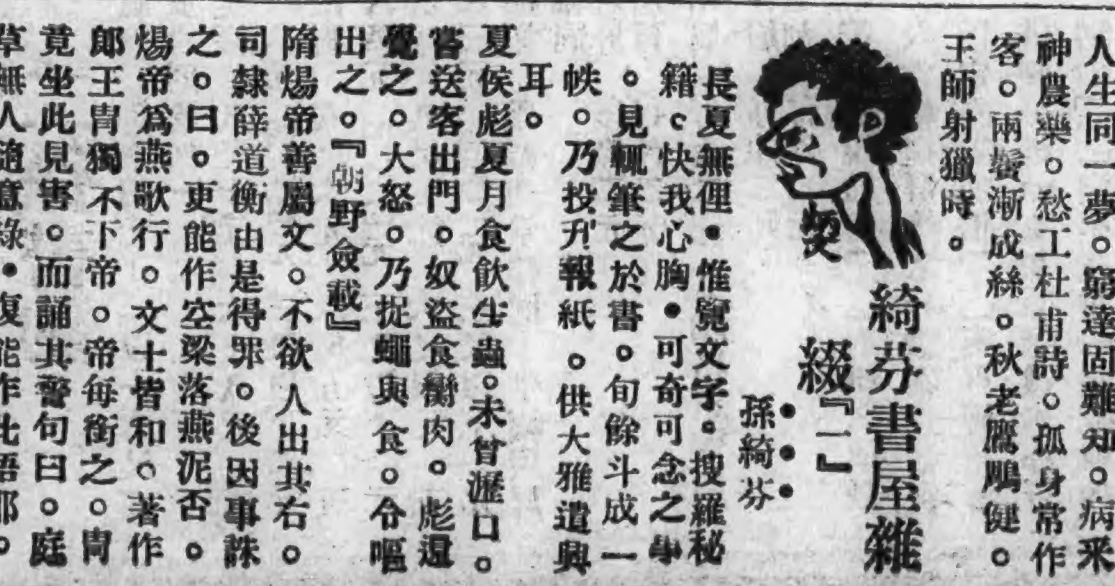 人生同一夢。窮達固難知。病来
神農樂。愁工杜甫詩。孤身常作
客。兩鬢漸成絲。秋老鷹鵰健。
王師射獵時。
綺芬書屋雜
綴『一』
孫綺芬
長夏無俚。惟覽文字。搜羅秘
籍。快我心胸。可奇可念之事
。見輒筆之於書。旬餘斗成一
帙。乃投刋報紙。供大雅遣興
耳。
夏侯彪夏月食飲生蟲。未曾瀝口。
嘗送客出門。奴盜食臠肉。彪還
覺之。大怒。乃捉蠅與食。令嘔
出之。『朝野僉載』
隋煬帝善屬文。不欲人出其右。
司隸薛道衡由是得罪。後因事誅
之。曰。更能作空梁落燕泥否。
煬帝爲燕歌行。文士皆和。著作
郎王胄獨不下帝。帝每銜之。胄
竟坐此見害。而誦其警句曰。庭
草無人隨意綠。復能作此語耶。